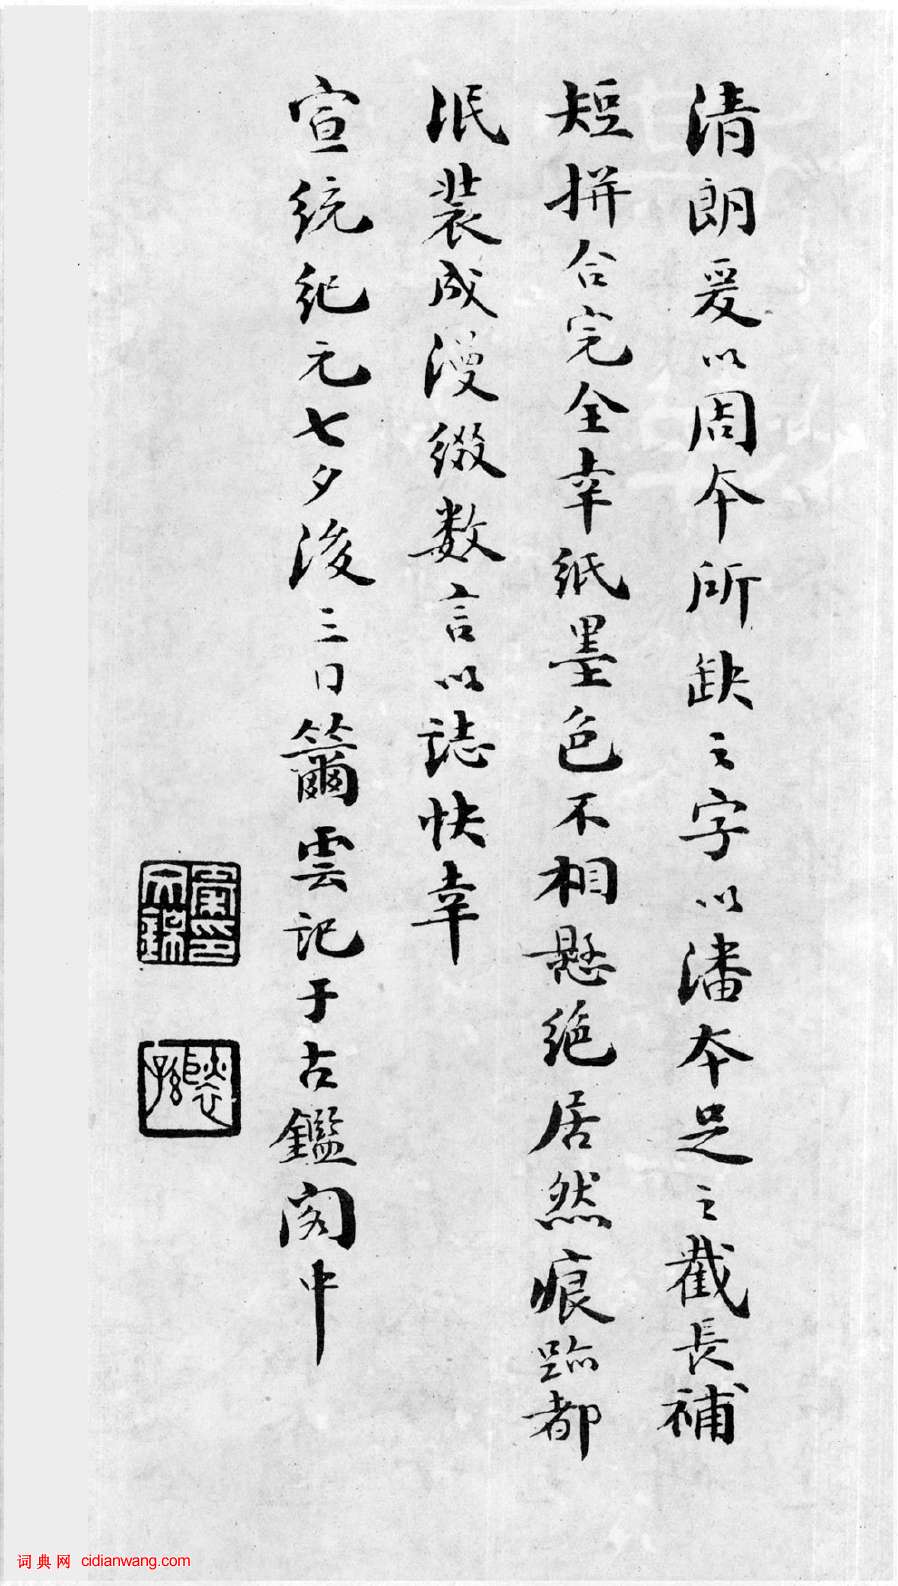 清朗爰以周本所缺之字以潘本足之截長補
短拼合完全幸紙墨色不相懸絕居然痕跡都
泯裝成漫綴數言以誌快幸
宣統紀元七夕後三日籋雲記于古鑑閣中
词典网 cidianwang.com